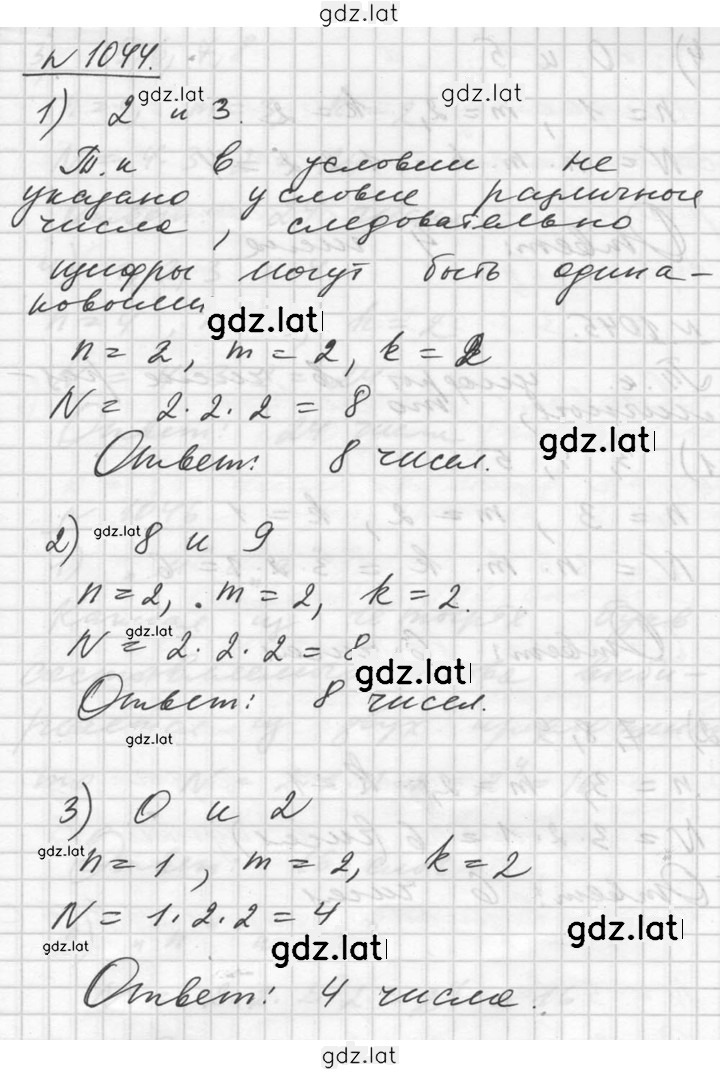 gdz.lat
№ 1044.
gdz.lat gdz.lat
1) 2 и 3.
Т.к в условии не
указано условие различные
числа, следовательно
цифры могут быть одина-
ковыми
gdz.lat
n = 2, m = 2, k = 2
N = 2·2·2 = 8
gdz.lat
Ответ: 8 чисел.
2) gdz.lat 8 и 9
n = 2, m = 2, k = 2.
gdz.lat
N = 2·2·2 = 8
gdz.lat
Ответ: 8 чисел.
gdz.lat
3) 0 и 2
gdz.lat
n = 1, m = 2, k = 2
N = 1·2·2 = 4
gdz.lat gdz.lat gdz.lat
Ответ: 4 числа.
gdz.lat